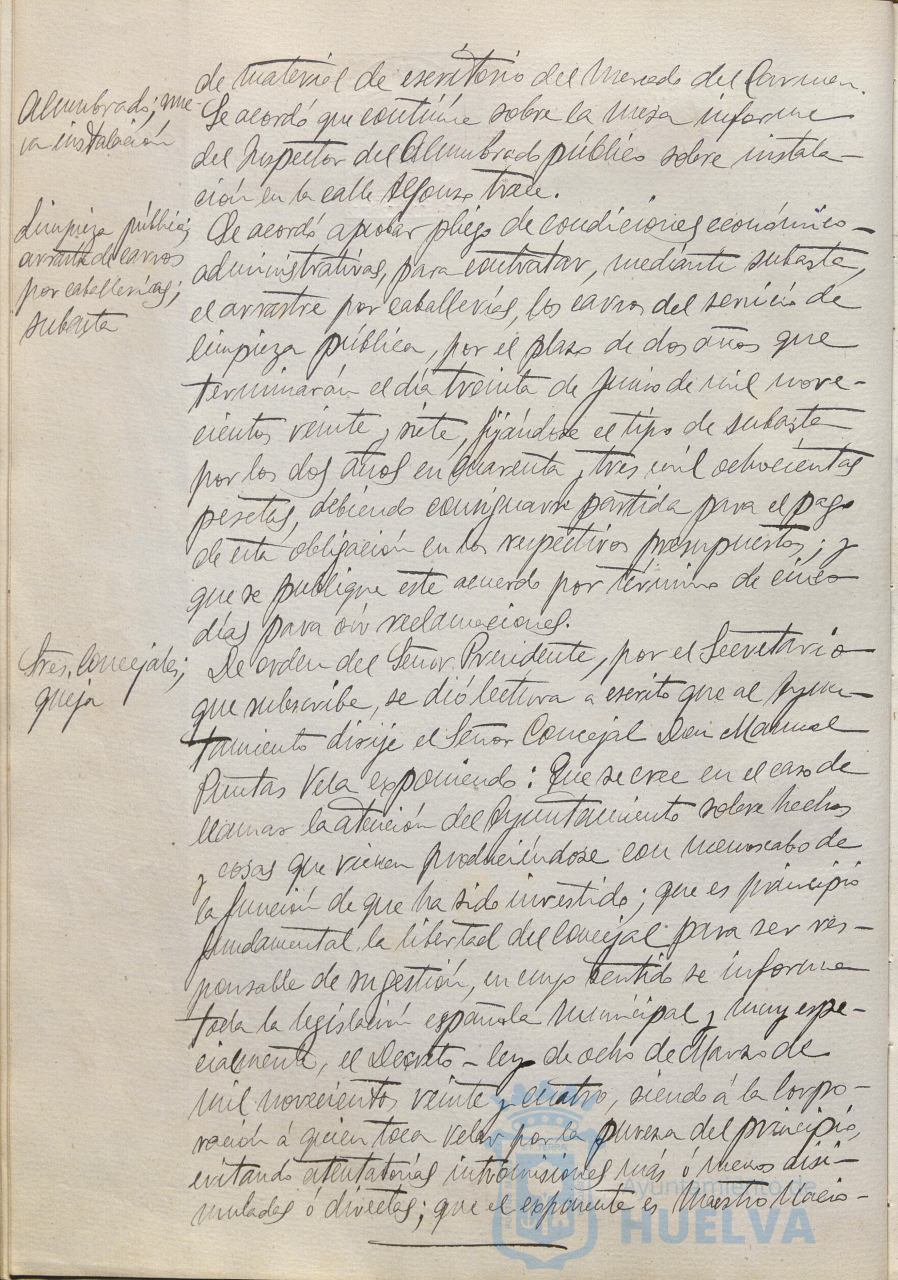 de material de escritorio del Mercado del Carmen.
Alumbrado; nue-
va instalación
Se acordó que continúe sobre la mesa informe
del Inspector del Alumbrado público sobre instala-
ción en la calle Alfonso trece.
Limpieza pública;
arrastre de carros
por caballerías;
subasta
Se acordó aprobar pliego de condiciones económico-
administrativas, para contratar, mediante subasta,
el arrastre por caballerías, los carros del servicio de
limpieza pública, por el plazo de dos años que
terminarán el día treinta de Junio de mil nove-
cientos veinte y siete, fijándose el tipo de subasta
por los dos años en cuarenta y tres mil ochocientas
pesetas, debiendo consignarse partida para el pago
de esta obligación en los respectivos presupuestos; y
que se publique este acuerdo por término de cinco
días para oir reclamaciones.
Sres. Concejales;
queja
De orden del Señor Presidente, por el Secretario
que subscribe, se dió lectura a escrito que al Ayun-
tamiento dirije el Señor Concejal Don Manuel
Puntas Vela exponiendo: Que se cree en el caso de
llamar la atención del Ayuntamiento sobre hechos
y cosas que vienen produciéndose con menoscabo de
la función de que ha sido investido; que es principio
fundamental la libertad del Concejal para ser res-
ponsable de su gestión, en cuyo sentido se informa
toda la legislación española Municipal y muy espe-
cialmente, el Decreto-ley de ocho de Marzo de
mil novecientos veinte y cuatro, siendo á la Corpo-
ración á quien toca velar por la pureza del principio,
evitando atentatorias intromisiones más ó menos disi-
muladas ó directas; que el exponente es Maestro Nacio-
Ayuntamiento de
HUELVA